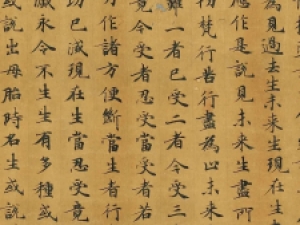 為見過去生未來生現在生
應作是說見未來生盡所
梵行苦行盡為以未來
一者已受二者今受三
竟令受者忍受當受者若
方作諸方便斷當生者行
已滅現在生當忍受竟
滅永令不生生有多種或
或說出母胎時名生或說